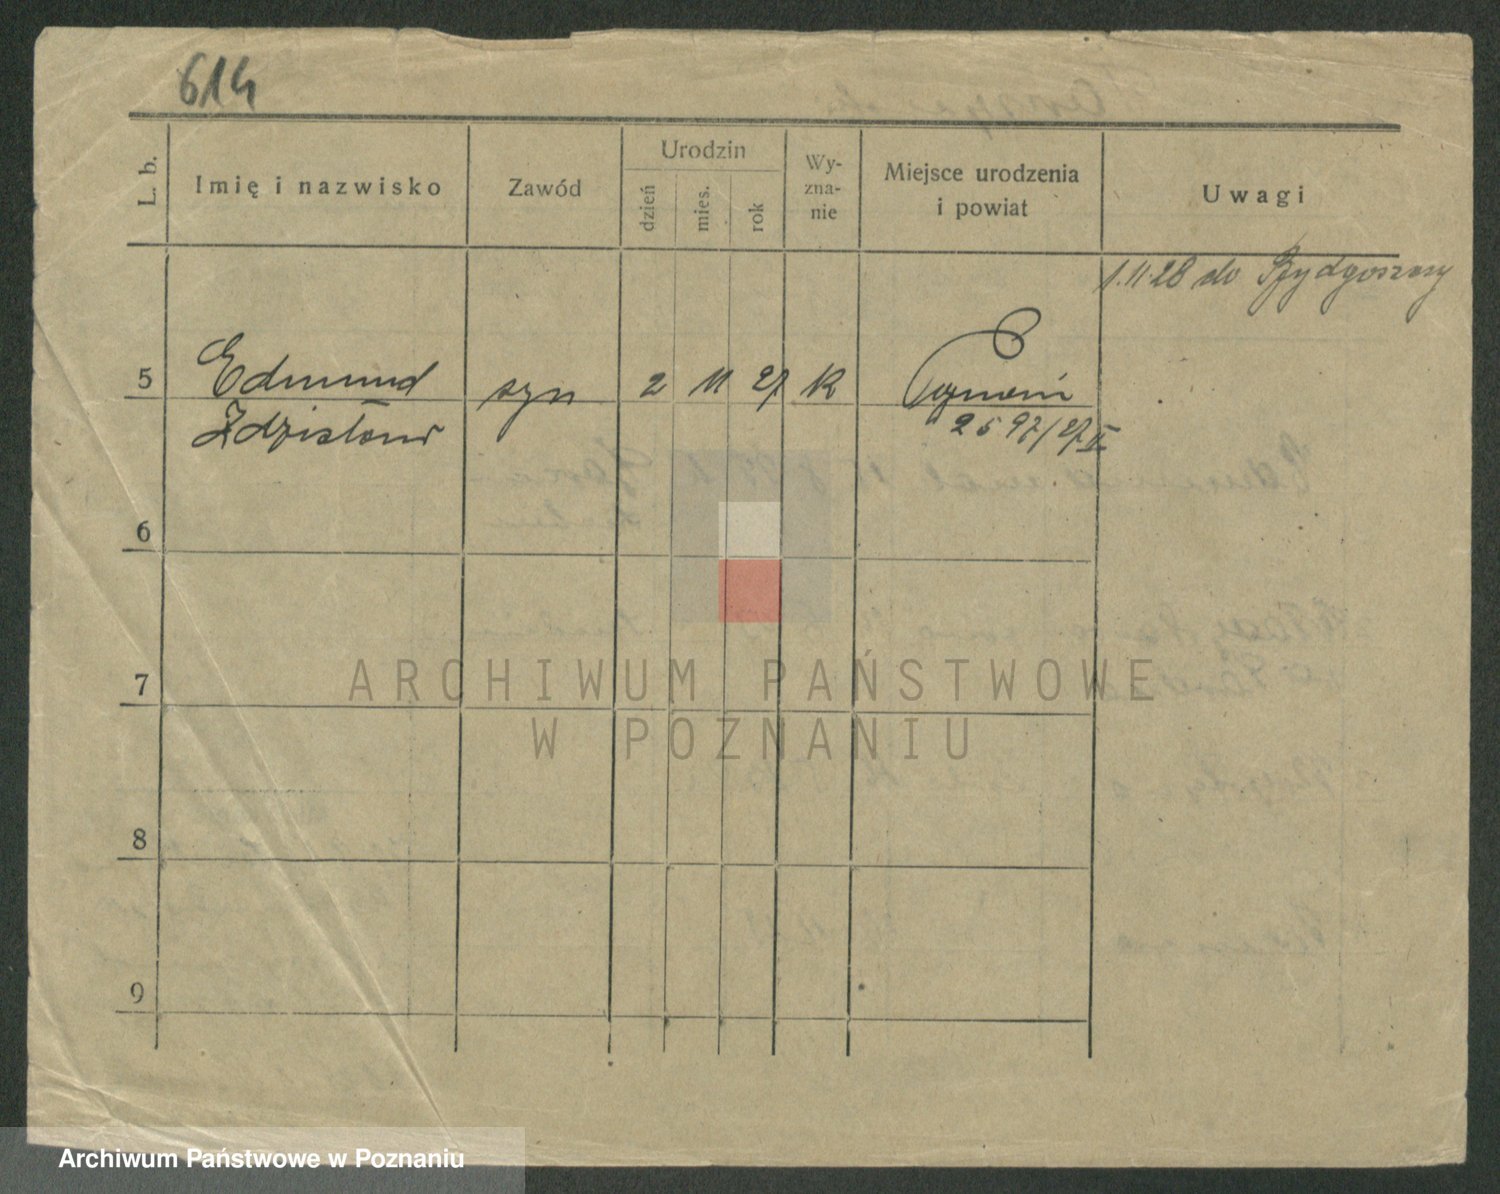 614
L. b.
Imię i nazwisko
Zawód
Urodzin
dzień
mies.
rok
Wy-
zna-
nie
Miejsce urodzenia
i powiat
Uwagi
1.11.28 do Bydgoszczy
5
Edmund
Zdzisław
syn
2
11
27
K
Poznań
2597/27 II
6
7
8
9
ARCHIWUM PAŃSTWOWE
W POZNANIU
Archiwum Państwowe w Poznaniu